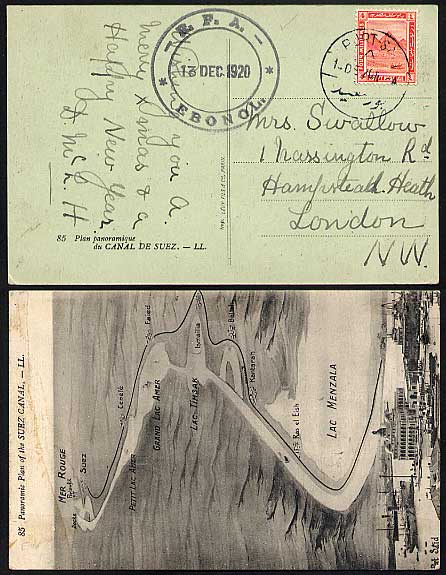 Wishing you A.
Merry Xmas & a
Happy New Year
A. McL. H
R. F. A.
13 DEC. 1920
EBONOL.
PORT SAID
Mrs. Swallow
1 Nassington Rd
Hampstead Heath
London
N.W.
85 Plan panoramique
du CANAL DE SUEZ. — LL.
85 Panoramic Plan of the SUEZ CANAL. — LL.
MER ROUGE
Suez
Geneffe
Fayed
PETIT LAC AMER
GRAND LAC AMER
LAC TIMSAK
Ismailia
Ballah
Kantarah
Ras el Esh
LAC MENZALA
Pt Saïd